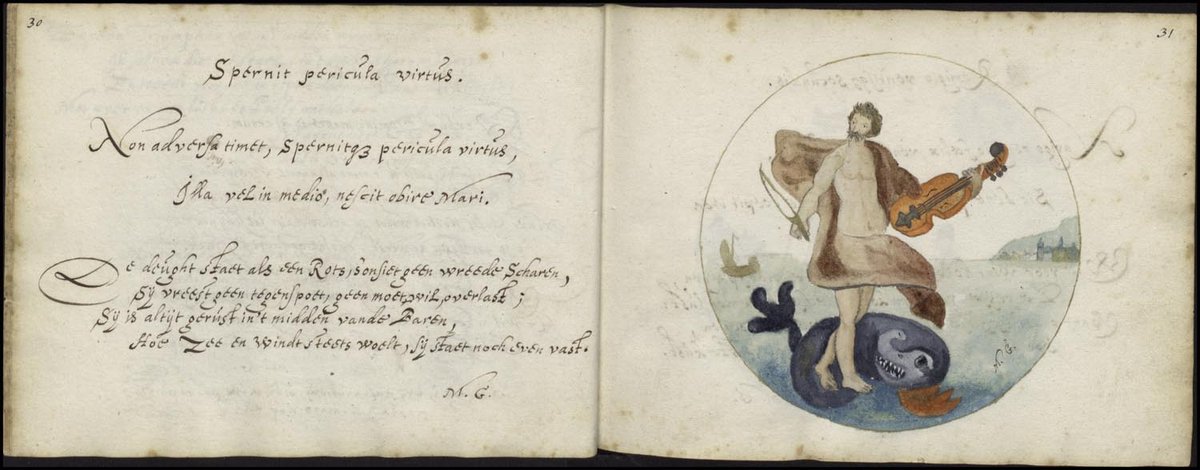 30
Spernit pericula virtus.
Non adversa timet, Spernitq3 pericula virtus,
Illa vel in medio, nescit obire Mari.
De deught staet als een Rots, sonsiet geen wreede Scharen,
Sy vreest geen tegenspoet, geen moetwil, overlast;
Sy is altyt gerust in't midden vande Baren,
Hoe Zee en Windt steets woelt, sy staet noch even vast.
M. G.
31